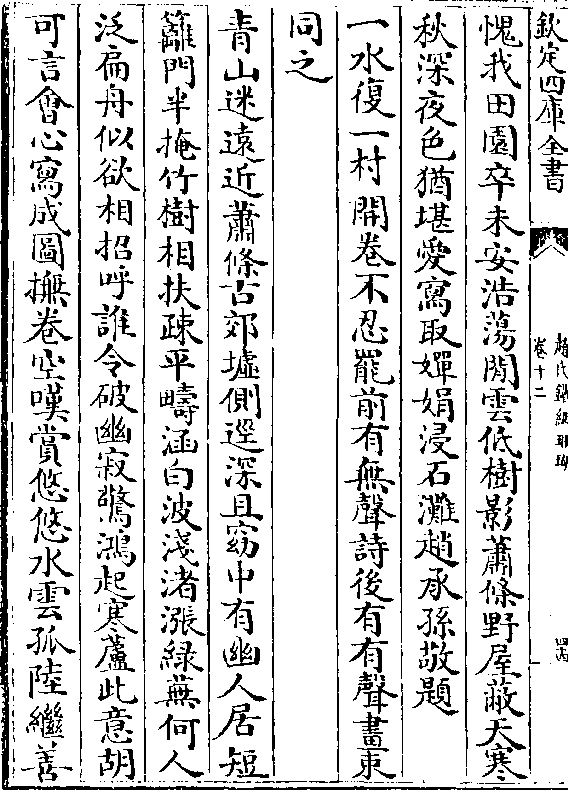 欽定四庫全書
趙氏鐵網珊瑚
卷十二
愧我田園卒未安浩蕩閒雲低樹影蕭條野屋蔽天寒
秋深夜色猶堪愛寫取嬋娟浸石灘趙承孫敬題
一水復一村開卷不忍罷前有無聲詩後有有聲畫束
同之
青山迷遠近蕭條古郊墟側逕深且窈中有幽人居短
籬門半掩竹樹相扶疎平疇涵白波淺渚漲綠蕪何人
泛扁舟似欲相招呼誰令破幽寂驚鴻起寒蘆此意胡
可言會心寫成圖撫卷空嘆賞悠悠水雲孤陸繼善